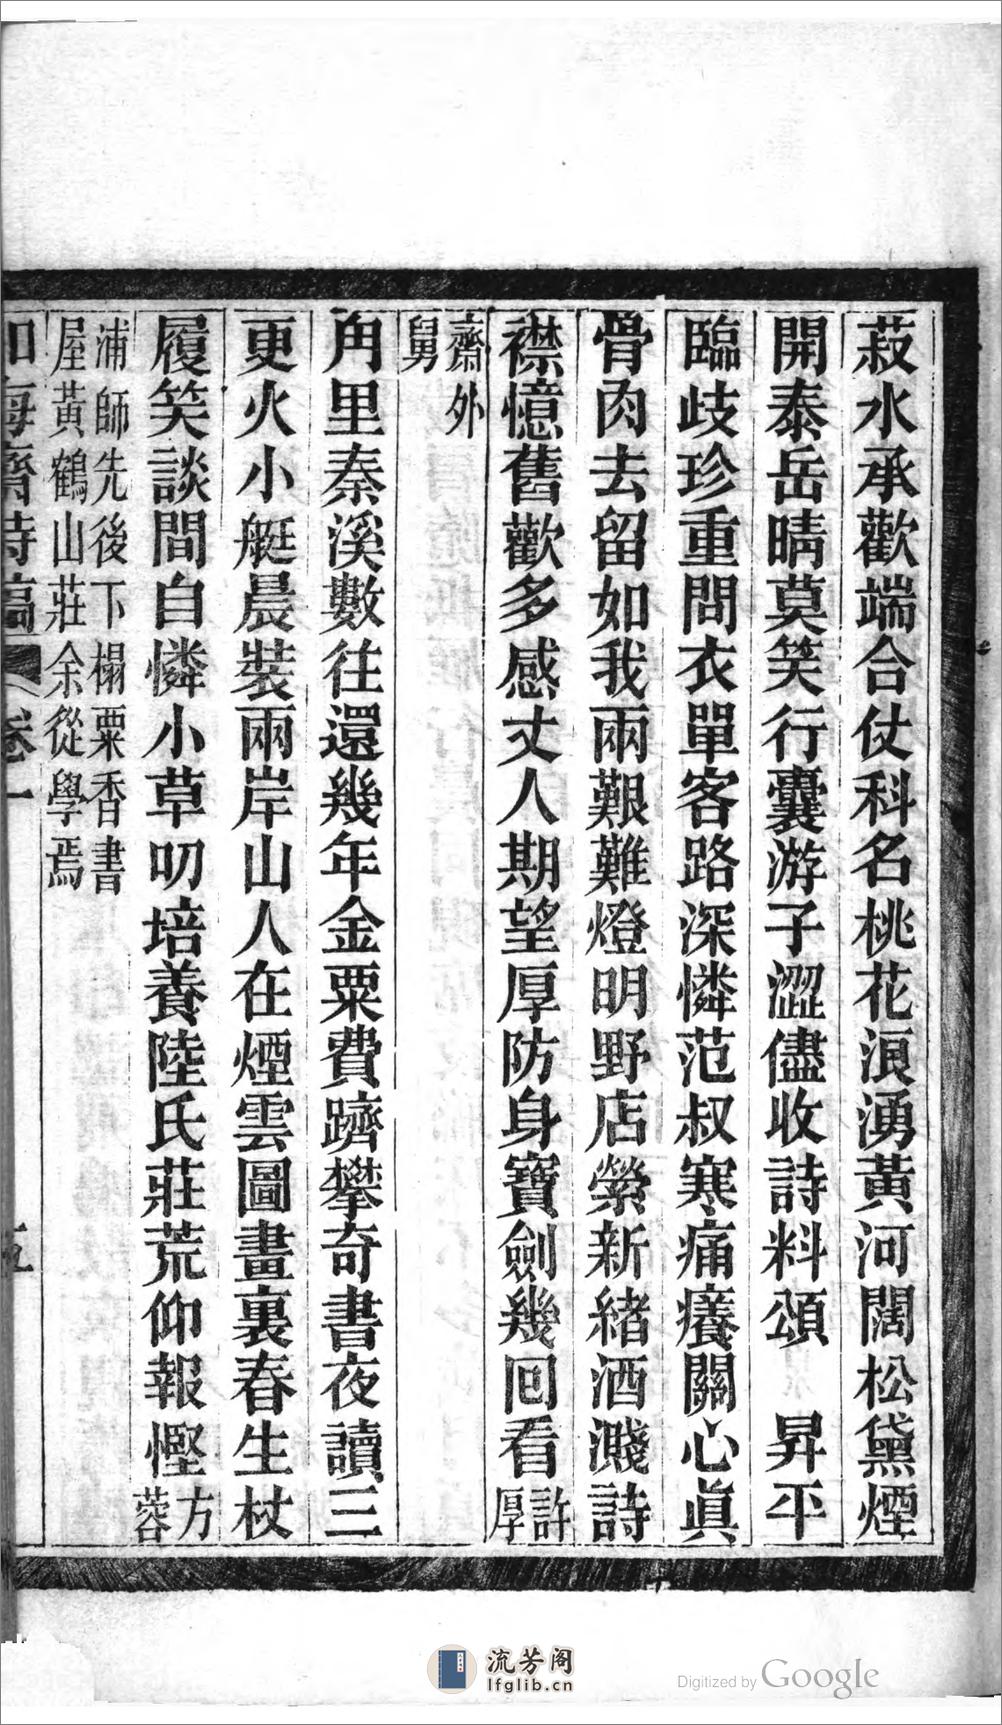 菽水承歡端合仗科名桃花浪湧黃河闊松黛煙
開泰岳晴莫笑行囊游子澀儘收詩料頌　昇平
臨歧珍重問衣單客路深憐范叔寒痛癢關心眞
骨肉去留如我兩艱難燈明野店縈新緒酒濺詩
襟憶舊歡多感丈人期望厚防身寶劍幾回看許厚
齋外舅
角里秦溪數往還幾年金粟費躋攀奇書夜讀三
更火小艇晨裝兩岸山人在煙雲圖畫裏春生杖
履笑談間自憐小草叨培養陸氏莊荒仰報慳方蓉
浦師先後下榻粟香書
屋黃鶴山莊余從學焉
卷一
流芳阁
lfglib.cn
Digitized by Google